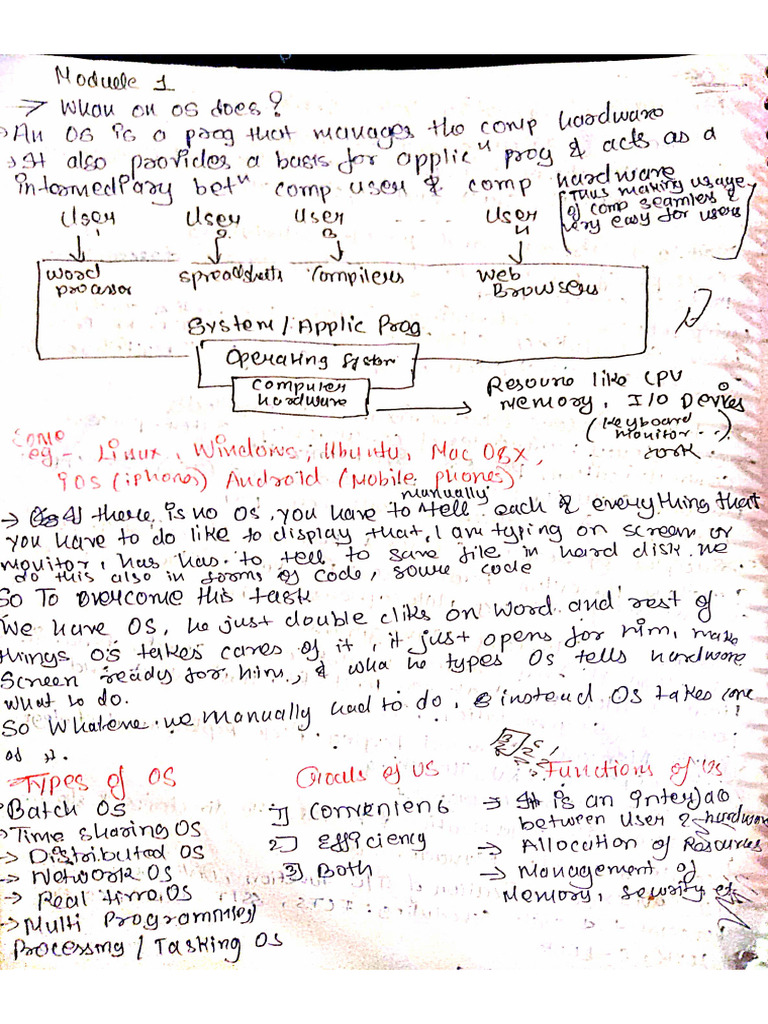 Module 1
→ What an OS does?
→ An OS is a prog that manages the comp hardware
→ It also provides a basis for applicⁿ prog & acts as a
intermediary betⁿ comp user & comp hardware
(Thus making usage
of comp seamless &
very easy for users)
User 1 User 2 User 3 - - - User 4
Word processor Spreadsheets Compilers Web Browsers
System / Applic Prog.
Operating System
Computer hardware
Resource like CPU
memory, I/O Devices
(keyboard
monitor ...)
Some
eg,-. Linux, Windows, Ubuntu, Mac OSX,
iOS (iphones) Android (Mobile phones)
→ If there is no OS, you have to manually tell each & everything that
you have to do like to display that, I am typing on screen or
monitor, has has to tell to save file in hard disk. he
do this also in forms of code, some code
So To overcome this task
We have OS, he just double cliks on word and rest of
things OS takes cares of it, it just opens for him, make
screen ready for him, & what he types OS tells hardware
what to do.
So Whatever we manually had to do, instead OS takes care
of it.
Types of OS
Batch OS
→ Time sharing OS
→ Distributed OS
→ Network OS
→ Real time OS
→ Multi Programming/
Processing / Tasking OS
Goals of OS
1) Convenient
2) Efficiency
3) Both
Functions of OS
→ It is an interface
between User & hardware
→ Allocation of Resources
→ Management of
Memory, security etc